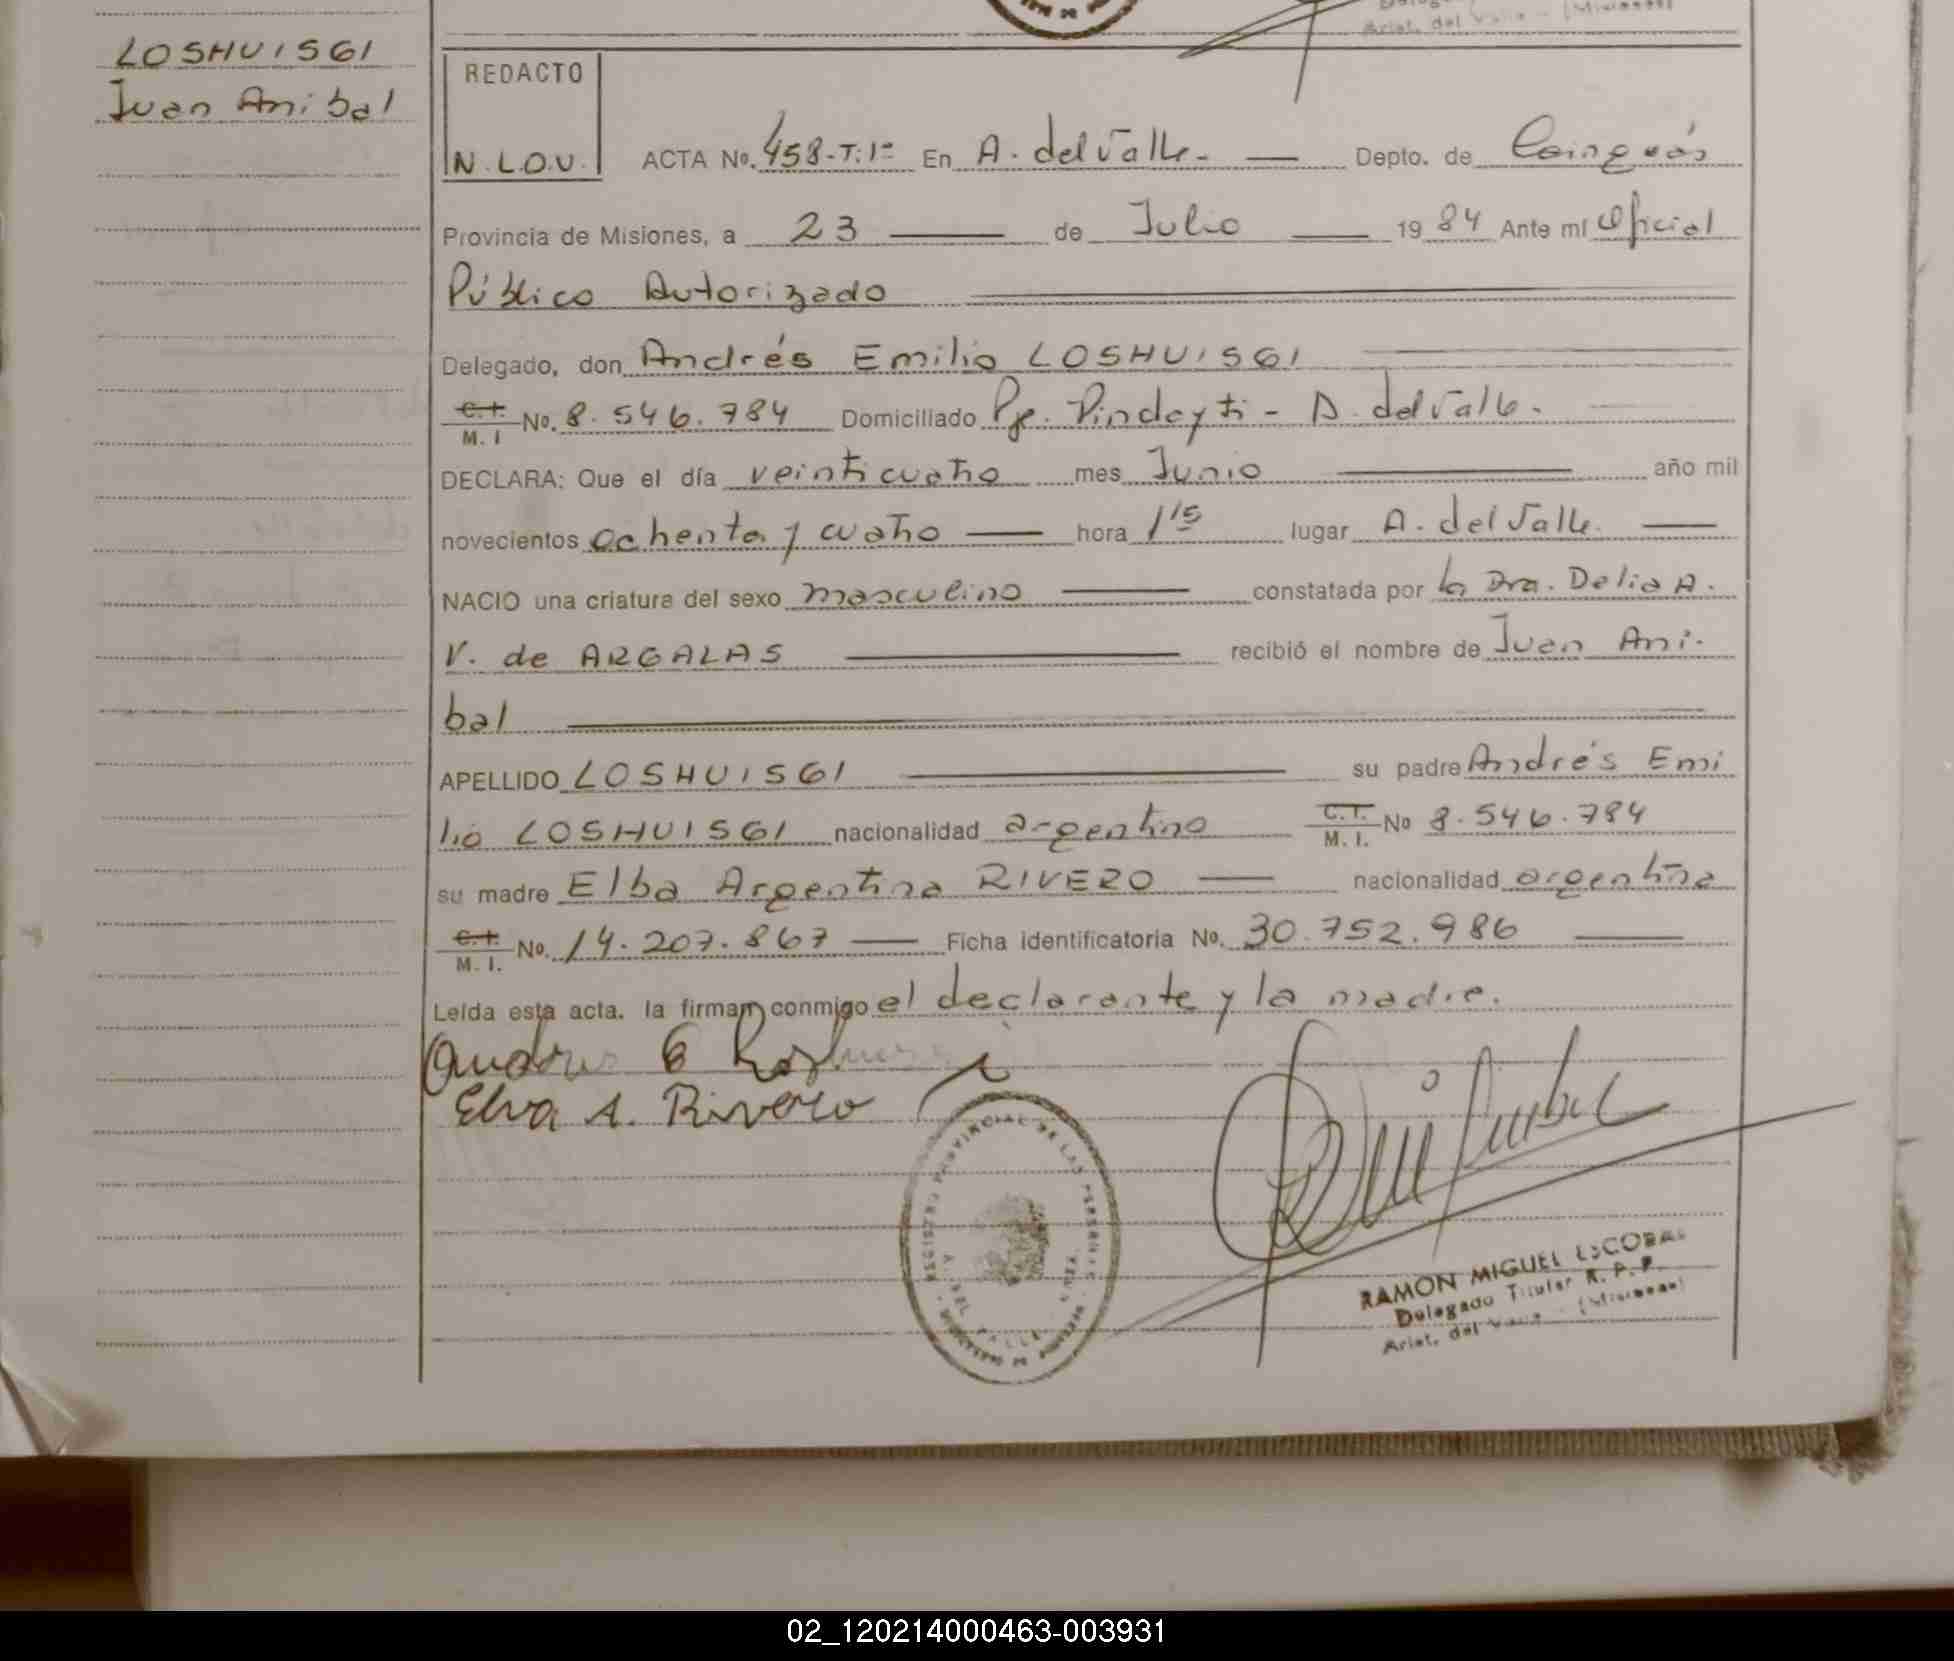 LOSHUISGI
Juan Anibal
REDACTO
N.L.O.V.
ACTA No. 458-T:1º En A. del Valle.- Depto. de Cainguás
Provincia de Misiones, a 23 de Julio 1984 Ante mí Oficial
Público Autorizado
Delegado, don Andrés Emilio LOSHUISGI
C.I. M.I No. 8.546.784 Domiciliado Pje. Pindayti - A. del Valle.
DECLARA: Que el día veinticuatro mes Junio año mil
novecientos ochenta y cuatro hora 1 15 lugar A. del Valle.
NACIO una criatura del sexo masculino constatada por la Dra. Delia A.
V. de ARGALAS recibió el nombre de Juan Ani-
bal
APELLIDO LOSHUISGI su padre Andrés Emi
lio LOSHUISGI nacionalidad argentino C.I. M.I. No 8.546.784
su madre Elba Argentina RIVERO nacionalidad argentina
C.I. M.I. No. 14.207.867 Ficha identificatoria No. 30.752.986
Leída esta acta. la firman conmigo el declarante y la madre.
Elva A. Rivero
REGISTRO PROVINCIAL DE LAS PERSONAS
RAMON MIGUEL ESCOBAR
Delegado Titular R. P. P.
Arist. del Valle - (Misiones)
02_120214000463-003931